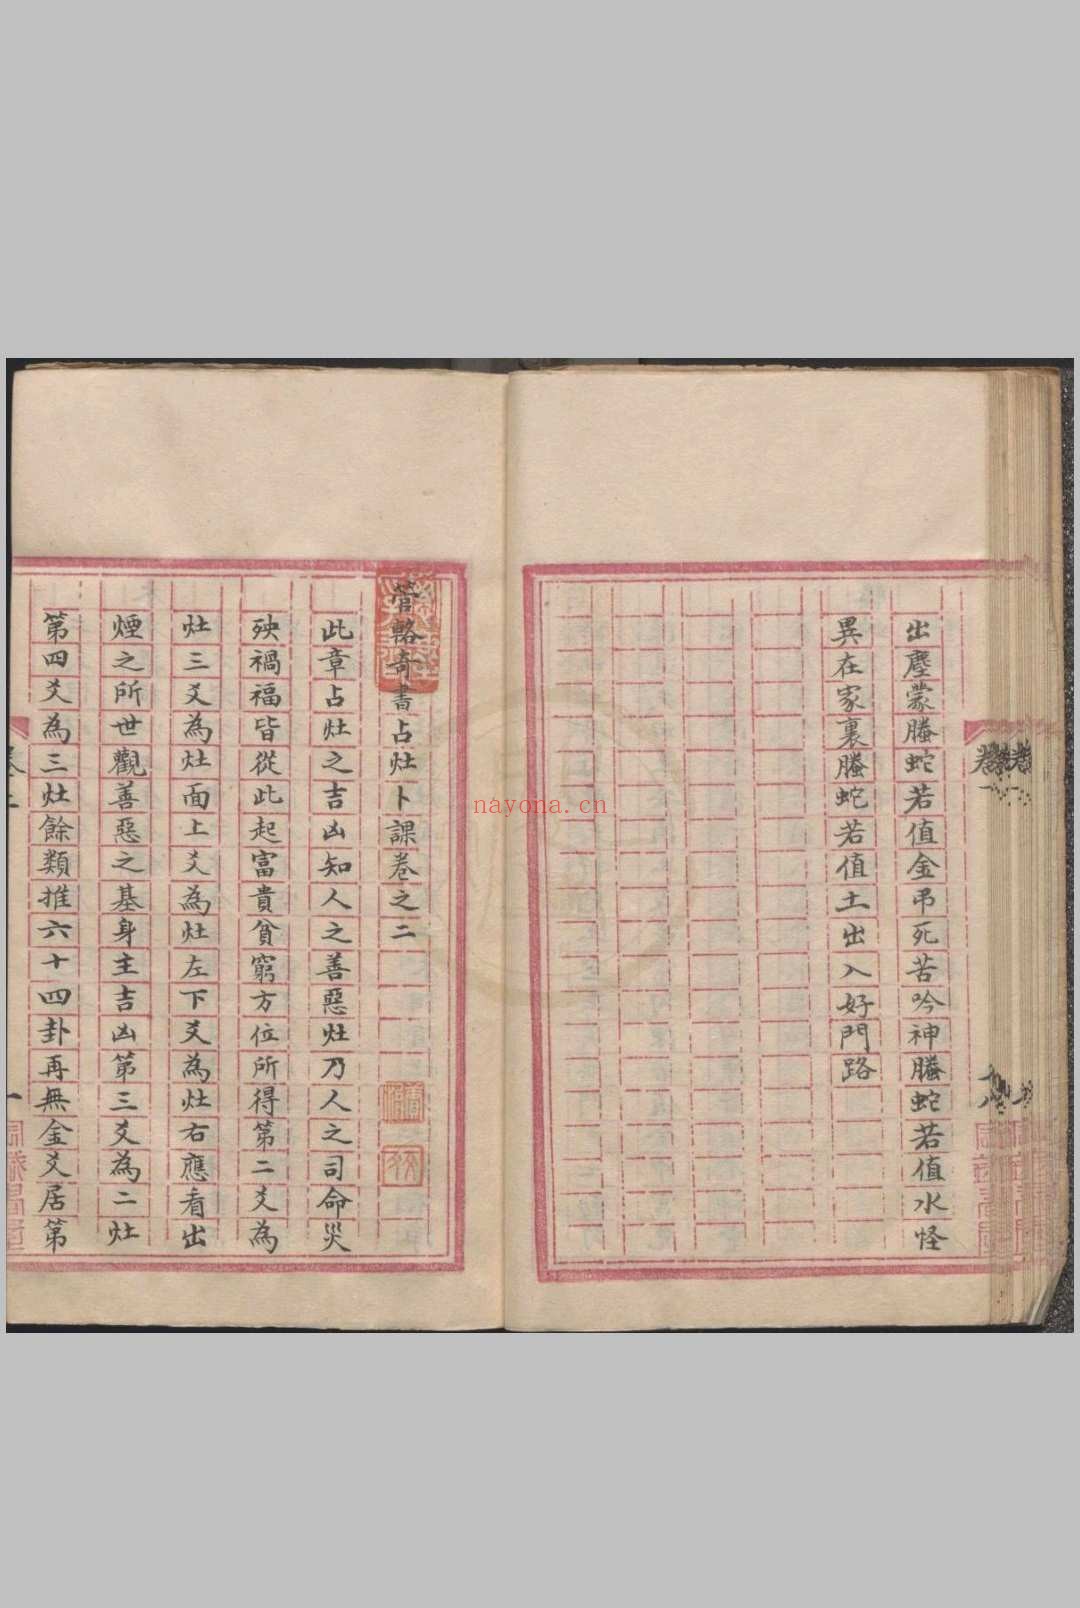 出塵蒙螣蛇若值金弔死苦吟神螣蛇若值水怪
異在家裏螣蛇若值土出入好門路
管輅奇書占灶卜課卷之二
此章占灶之吉凶知人之善惡灶乃人之司命災
殃禍福皆從此起富貴貧窮方位所得第二爻為
灶三爻為灶面上爻為灶左下爻為灶右應看出
煙之所世觀善惡之基身主吉凶第三爻為二灶
第四爻為三灶餘類推六十四卦再無金爻居第
nayona.cn